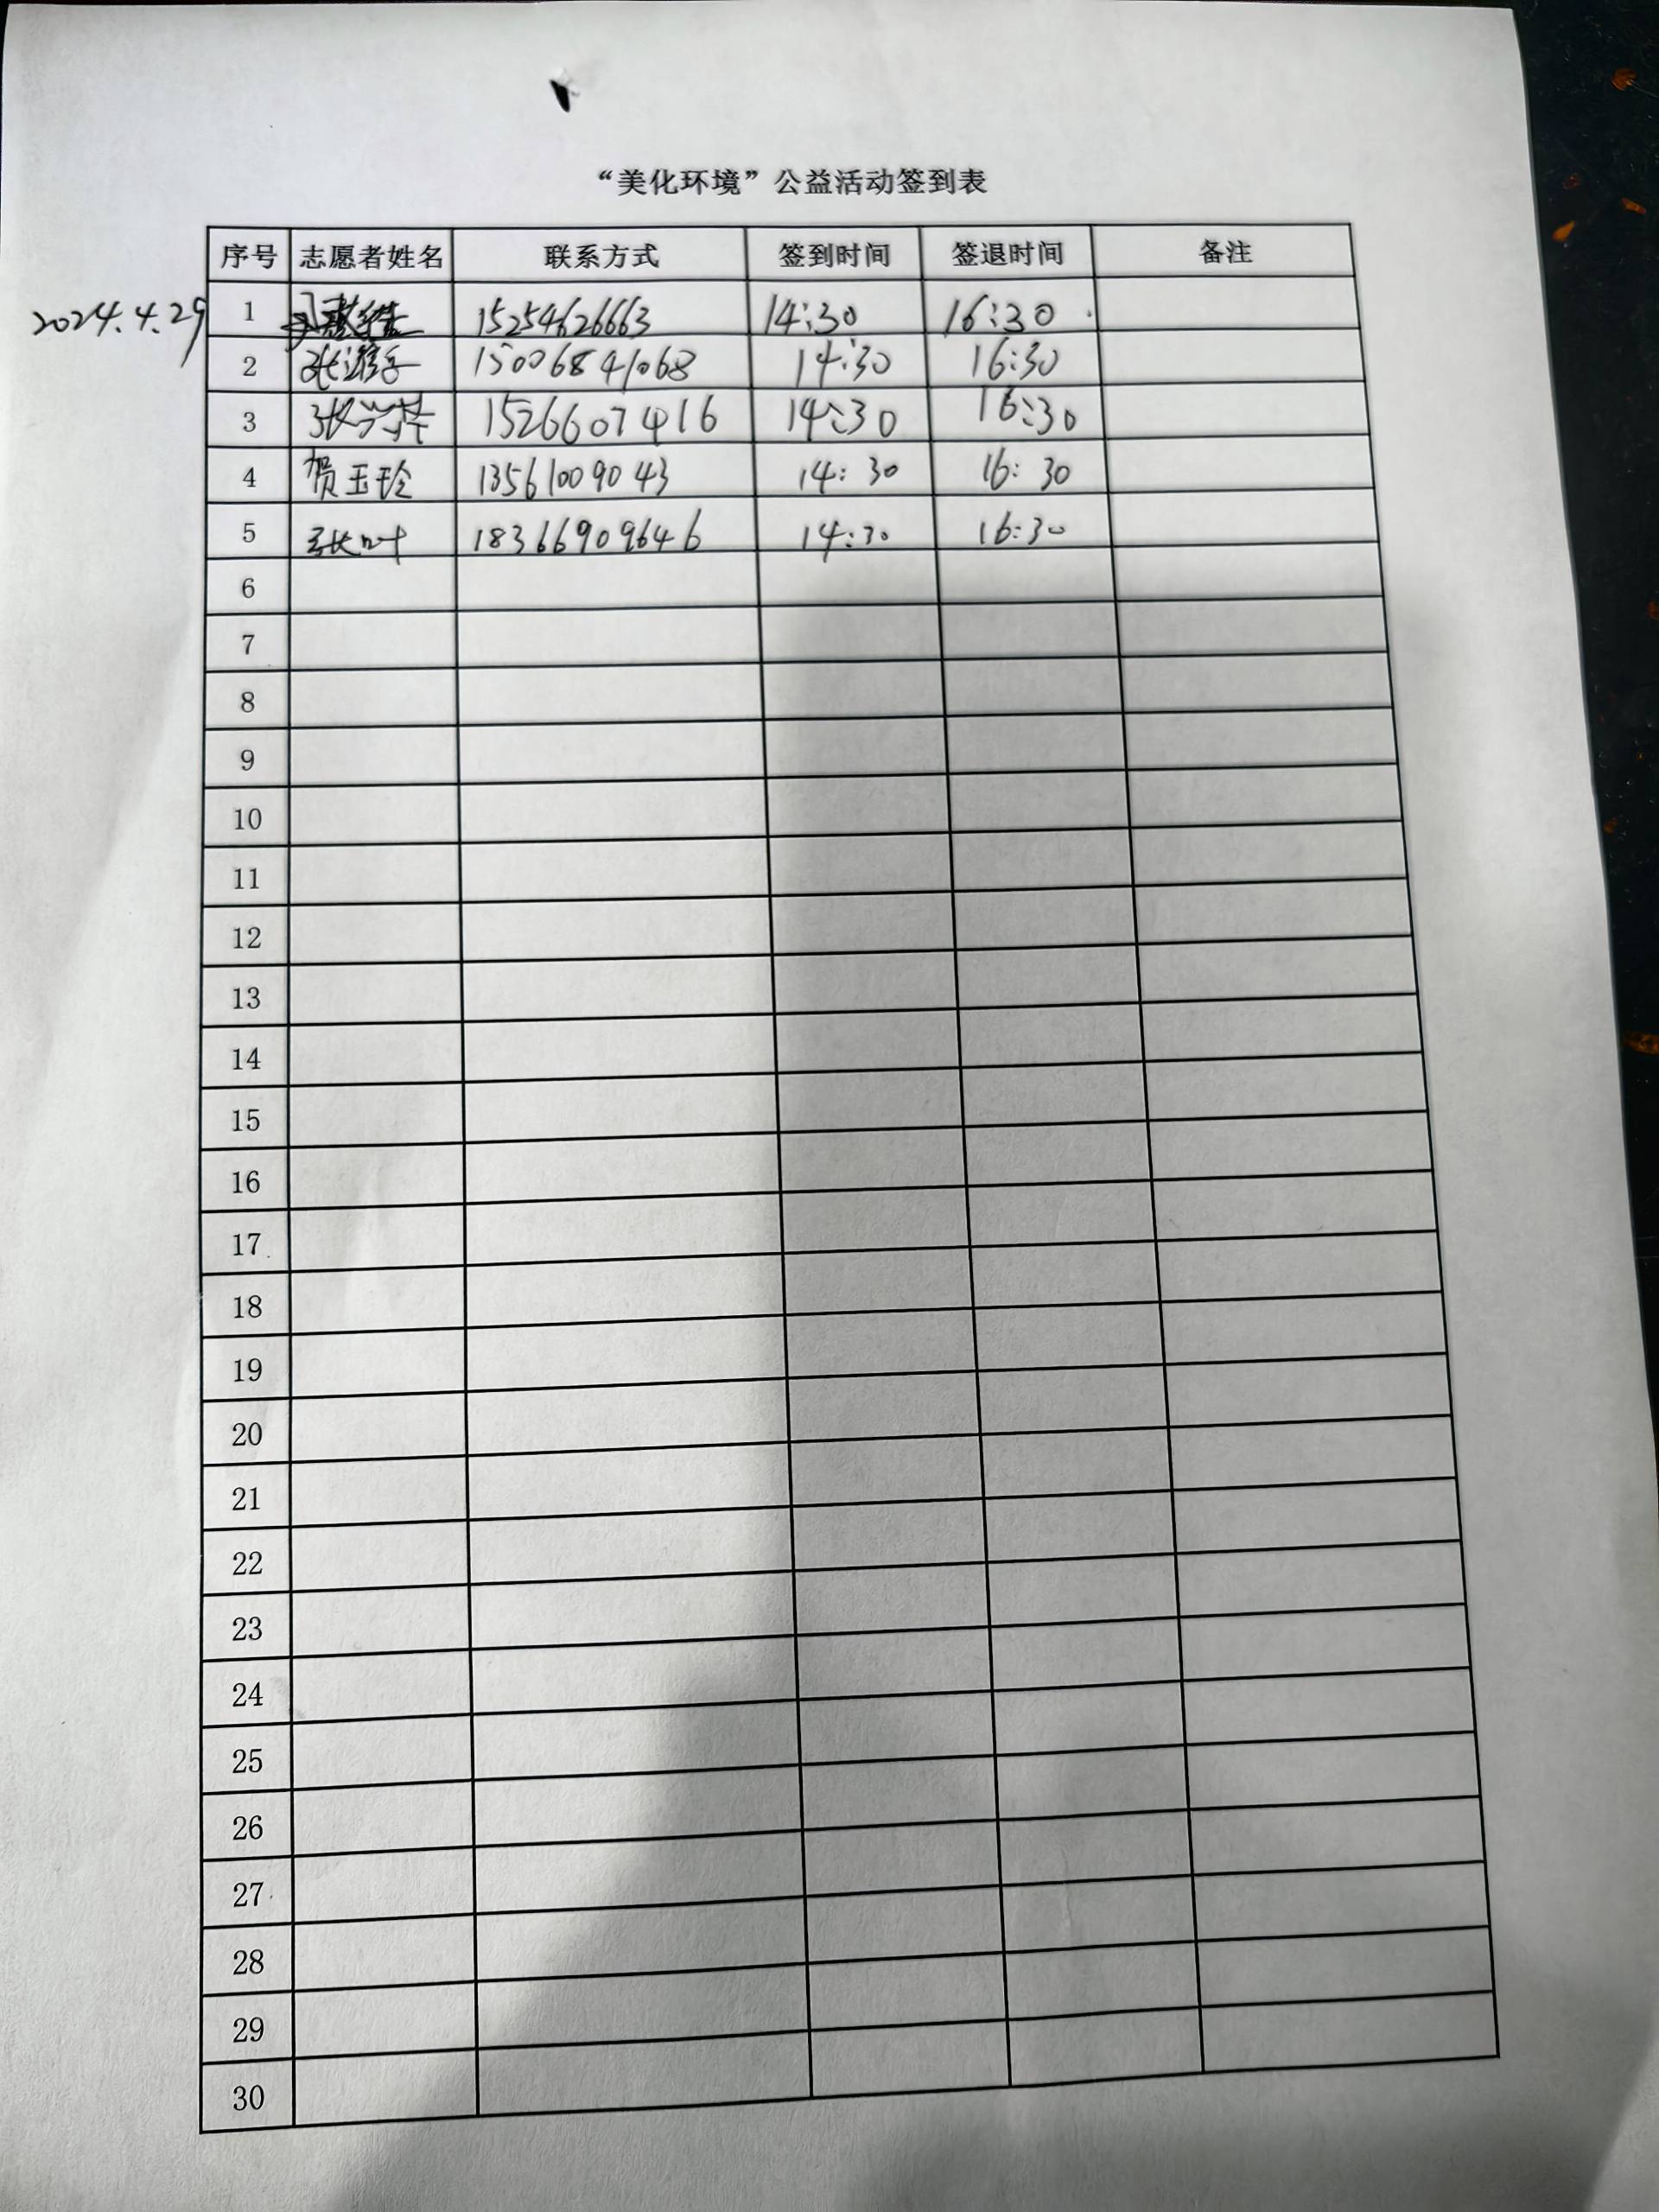 “美化环境”公益活动签到表
序号 志愿者姓名 联系方式 签到时间 签退时间 备注
2024.4.29
1 15254626663 14:30 16:30
2 张 15006841068 14:30 16:30
3 张兴 15266074416 14:30 16:30
4 贺玉玲 13561009043 14:30 16:30
5 张叶 18366909646 14:30 16:30
6
7
8
9
10
11
12
13
14
15
16
17
18
19
20
21
22
23
24
25
26
27
28
29
30